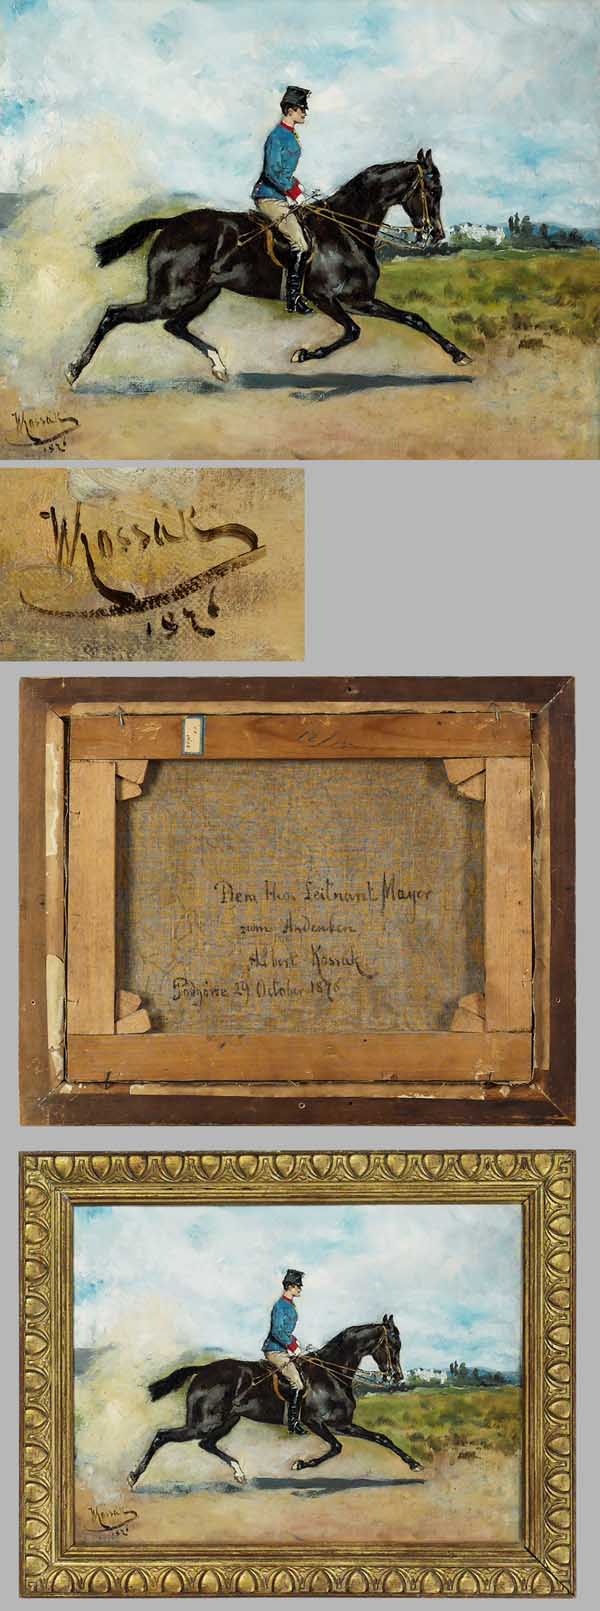 WKossak
1876
WKossak
1876
Dem Hrn Leitnant Mayer
zum Andenken
Albert Kossak
Podgórze 29 October 1876
WKossak
1876